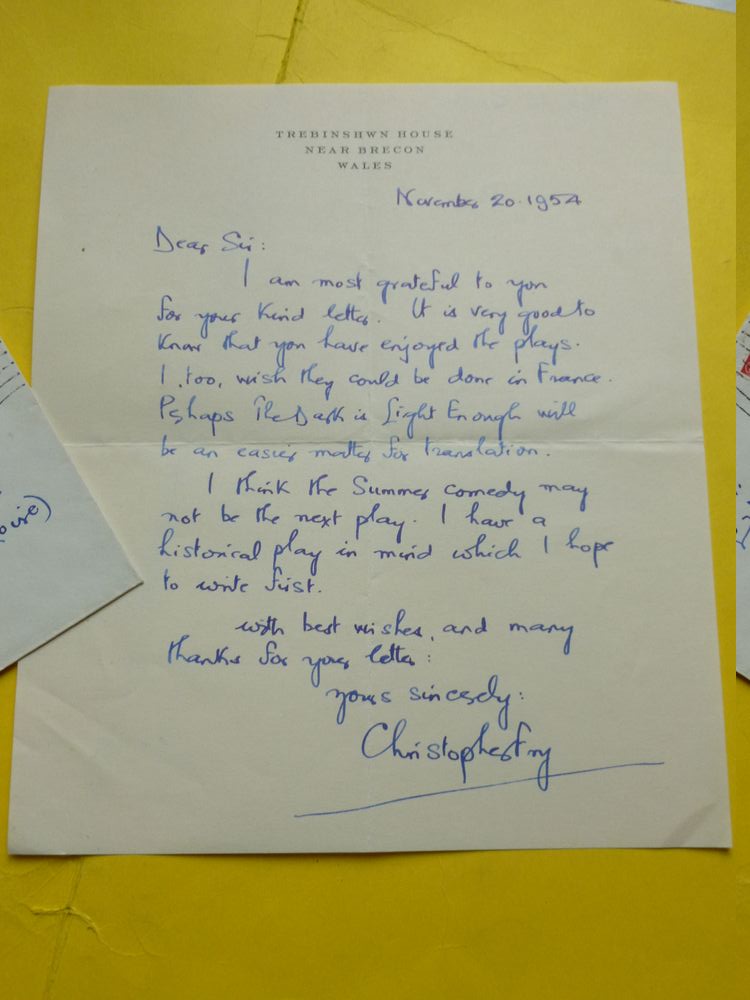 TREBINSHWN HOUSE
NEAR BRECON
WALES
November 20. 1954
Dear Sir:
I am most grateful to you
for your kind letter. It is very good to
know that you have enjoyed the plays.
I, too, wish they could be done in France.
Perhaps The Dark is Light Enough will
be an easier matter for translation.
I think the Summer comedy may
not be the next play. I have a
historical play in mind which I hope
to write first.
with best wishes, and many
thanks for your letter:
yours sincerely:
Christopher Fry